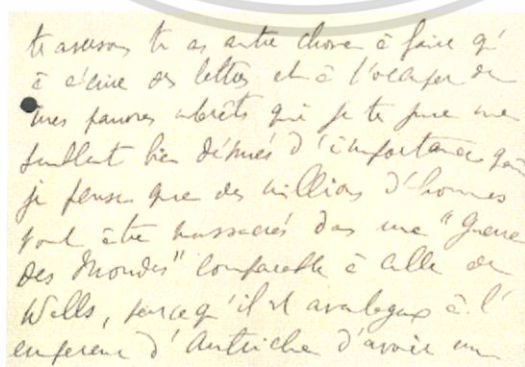 tu as autre chose à faire qu'
à écrire des lettres et à t'occuper de
mes pauvres intérêts qui je te jure me
semblent bien dénués d'importance quand
je pense que des millions d'hommes
vont être massacrés dans une "Guerre
des Mondes" comparable à celle de
Wells, parce qu'il est avantageux à l'
empereur d'Autriche d'avoir un